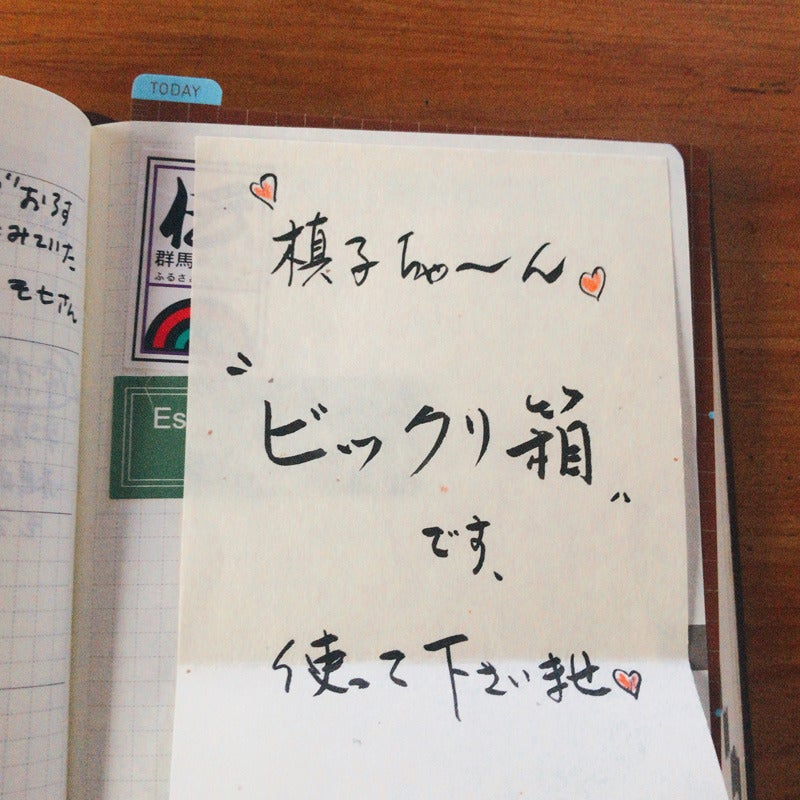 TODAY
おろす
みていた
そセさん
群馬
ふるさ
Es
槙子ちゃ〜ん
"ビックリ箱"
です、
使って下さいませ